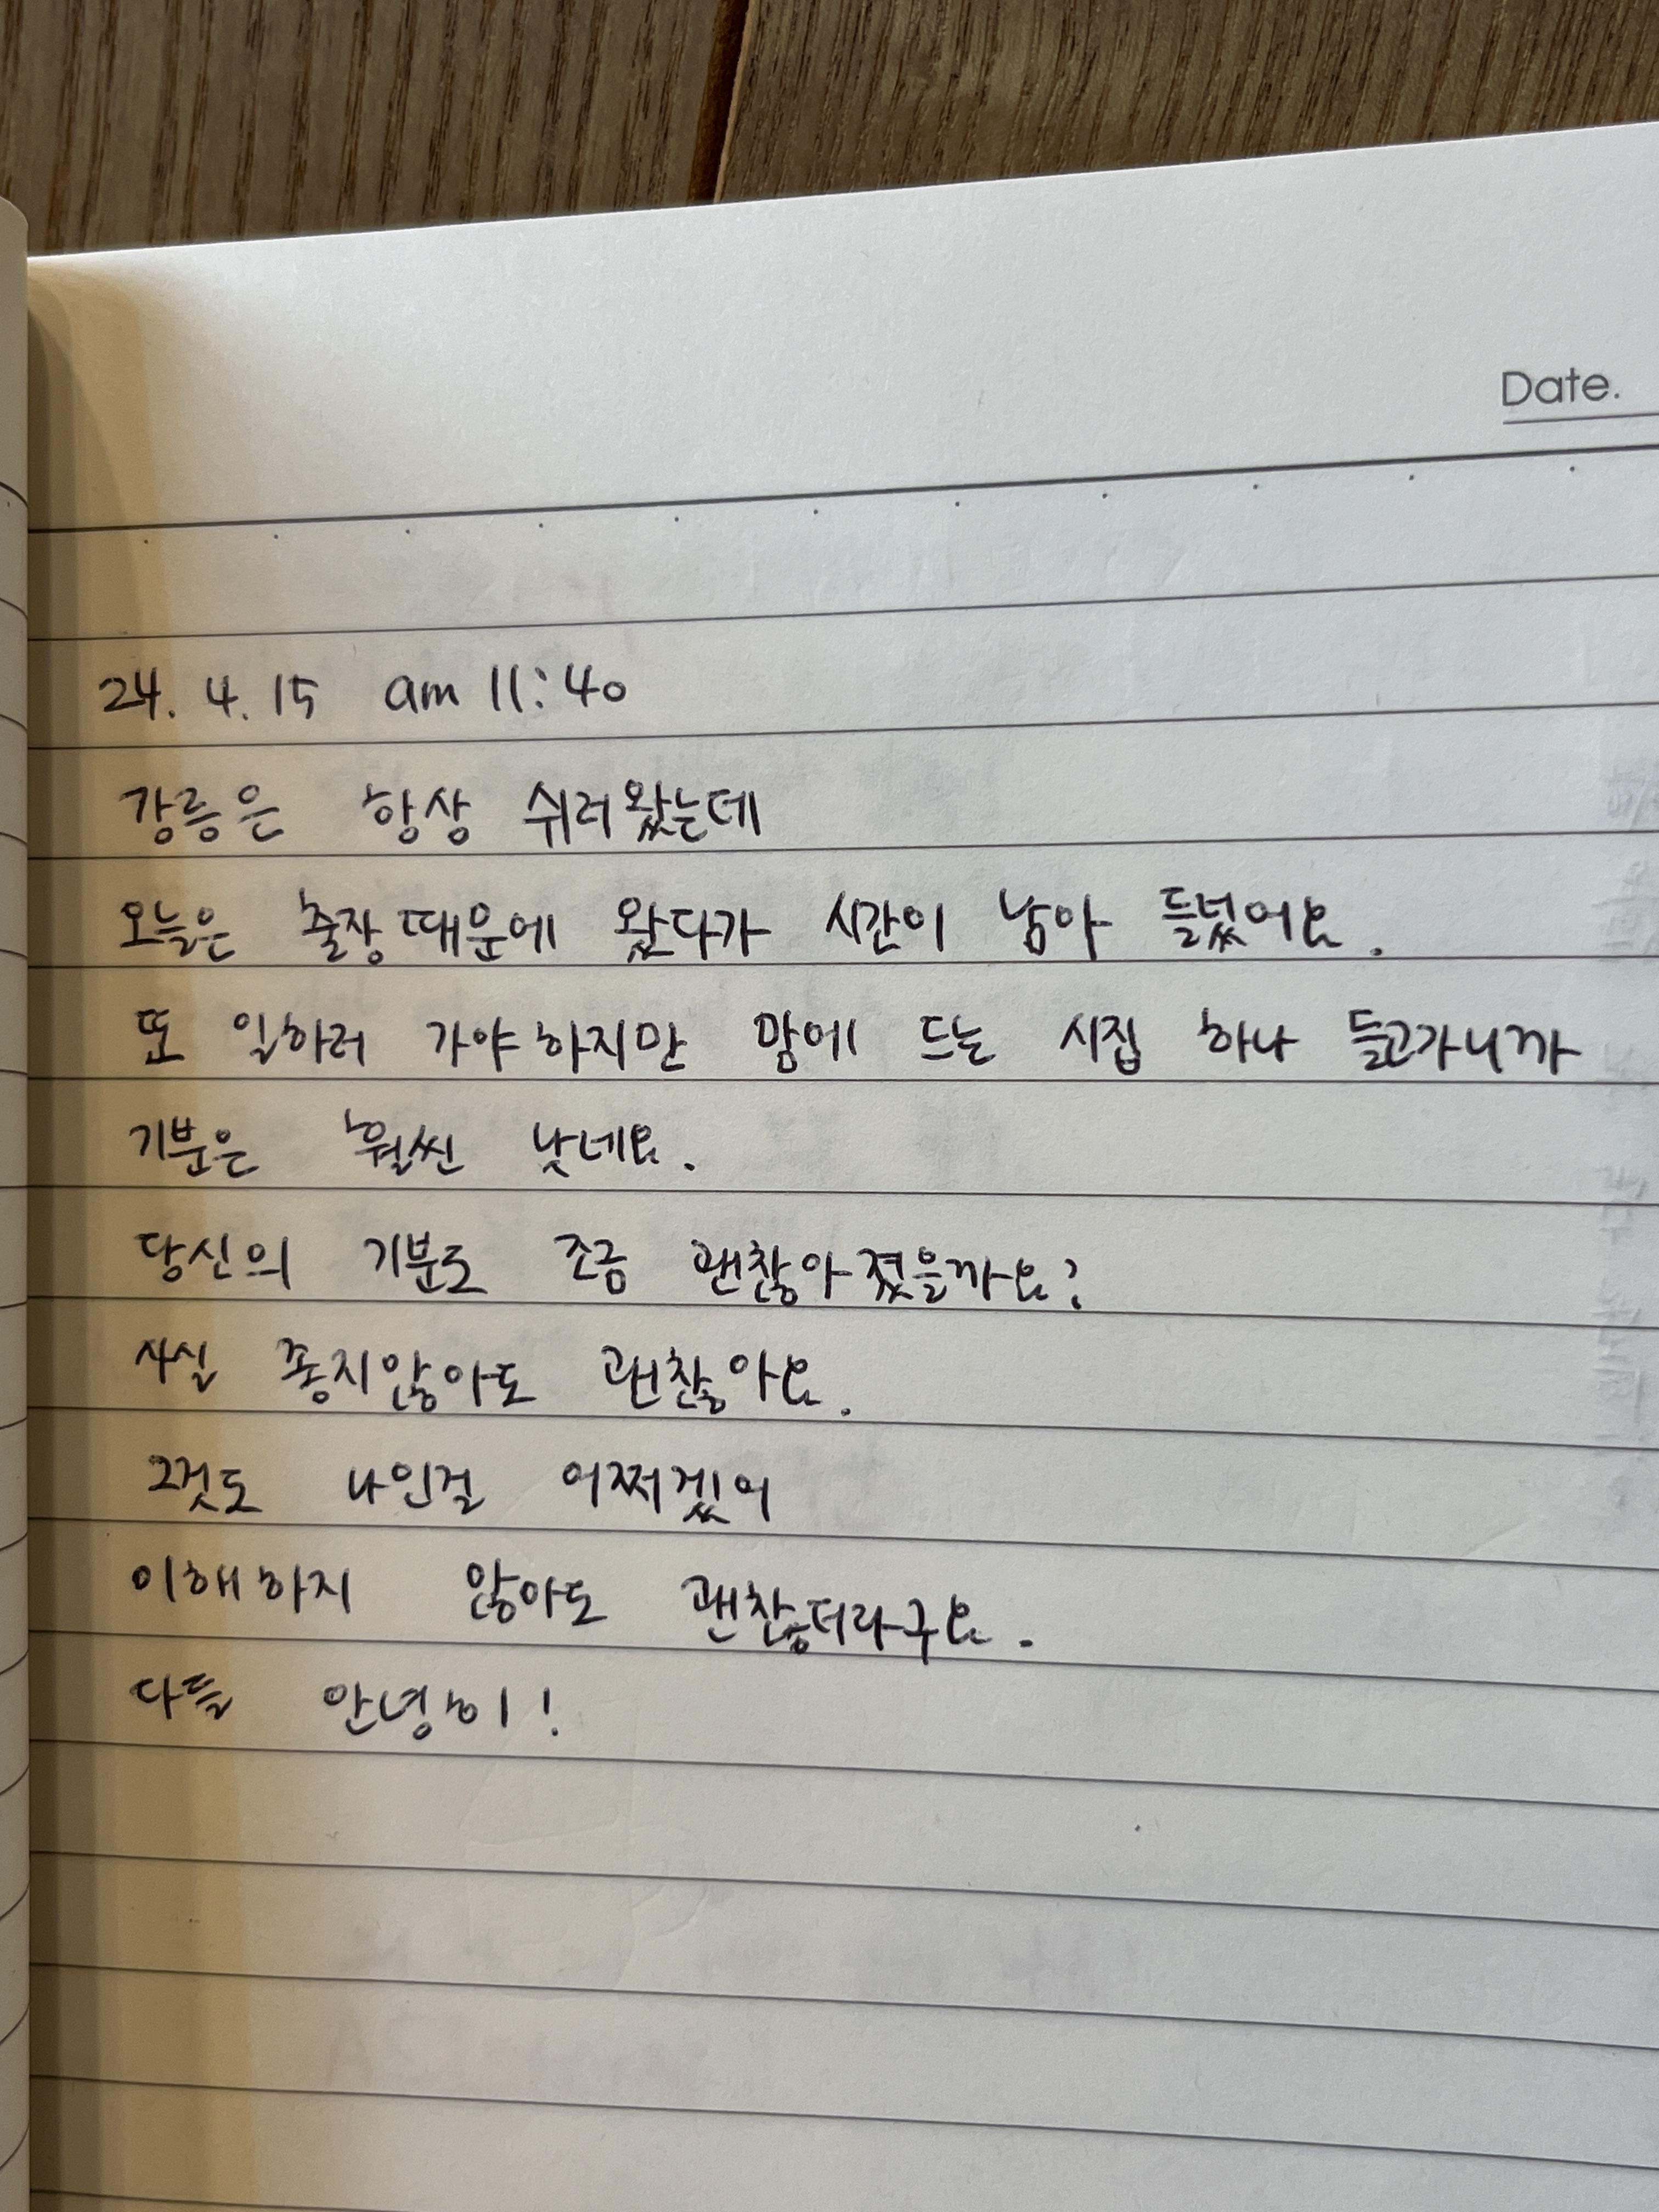 Date.
24. 4. 15 am 11:40
강릉은 항상 쉬러왔는데
오늘은 출장때문에 왔다가 시간이 남아 들렀어요.
또 일하러 가야하지만 맘에 드는 시집 하나 들고가니까
기분은 훨씬 낫네요.
당신의 기분도 조금 괜찮아졌을까요?
사실 좋지않아도 괜찮아요.
그것도 나인걸 어쩌겠어
이해하지 않아도 괜찮더라구요.
다들 안녕히!